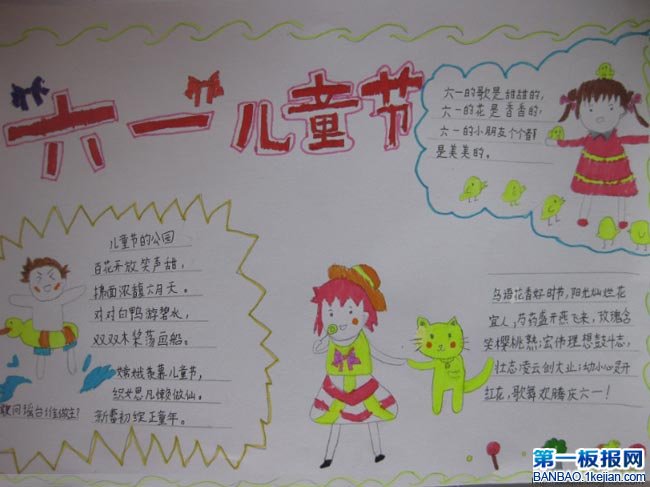 六一儿童节
六一的歌是甜甜的，
六一的花是香香的，
六一的小朋友个个都
是美美的。
儿童节的公园
百花开放笑声甜，
拂面浓馥六月天。
对对白鸭游碧水，
双双木桨荡画船。
嫦娥羡慕儿童节，
织女思凡懒做仙。
敢问瑶台谁做主？
新蕾初绽正童年。
鸟语花香好时节，阳光灿烂花
宜人，芍药盛开燕飞来，玫瑰含
笑樱桃熟；宏伟理想鼓斗志，
壮志凌云创大业；幼小心灵开
红花，歌舞欢腾庆六一！
第一板报网
BANBAO.1kejian.com